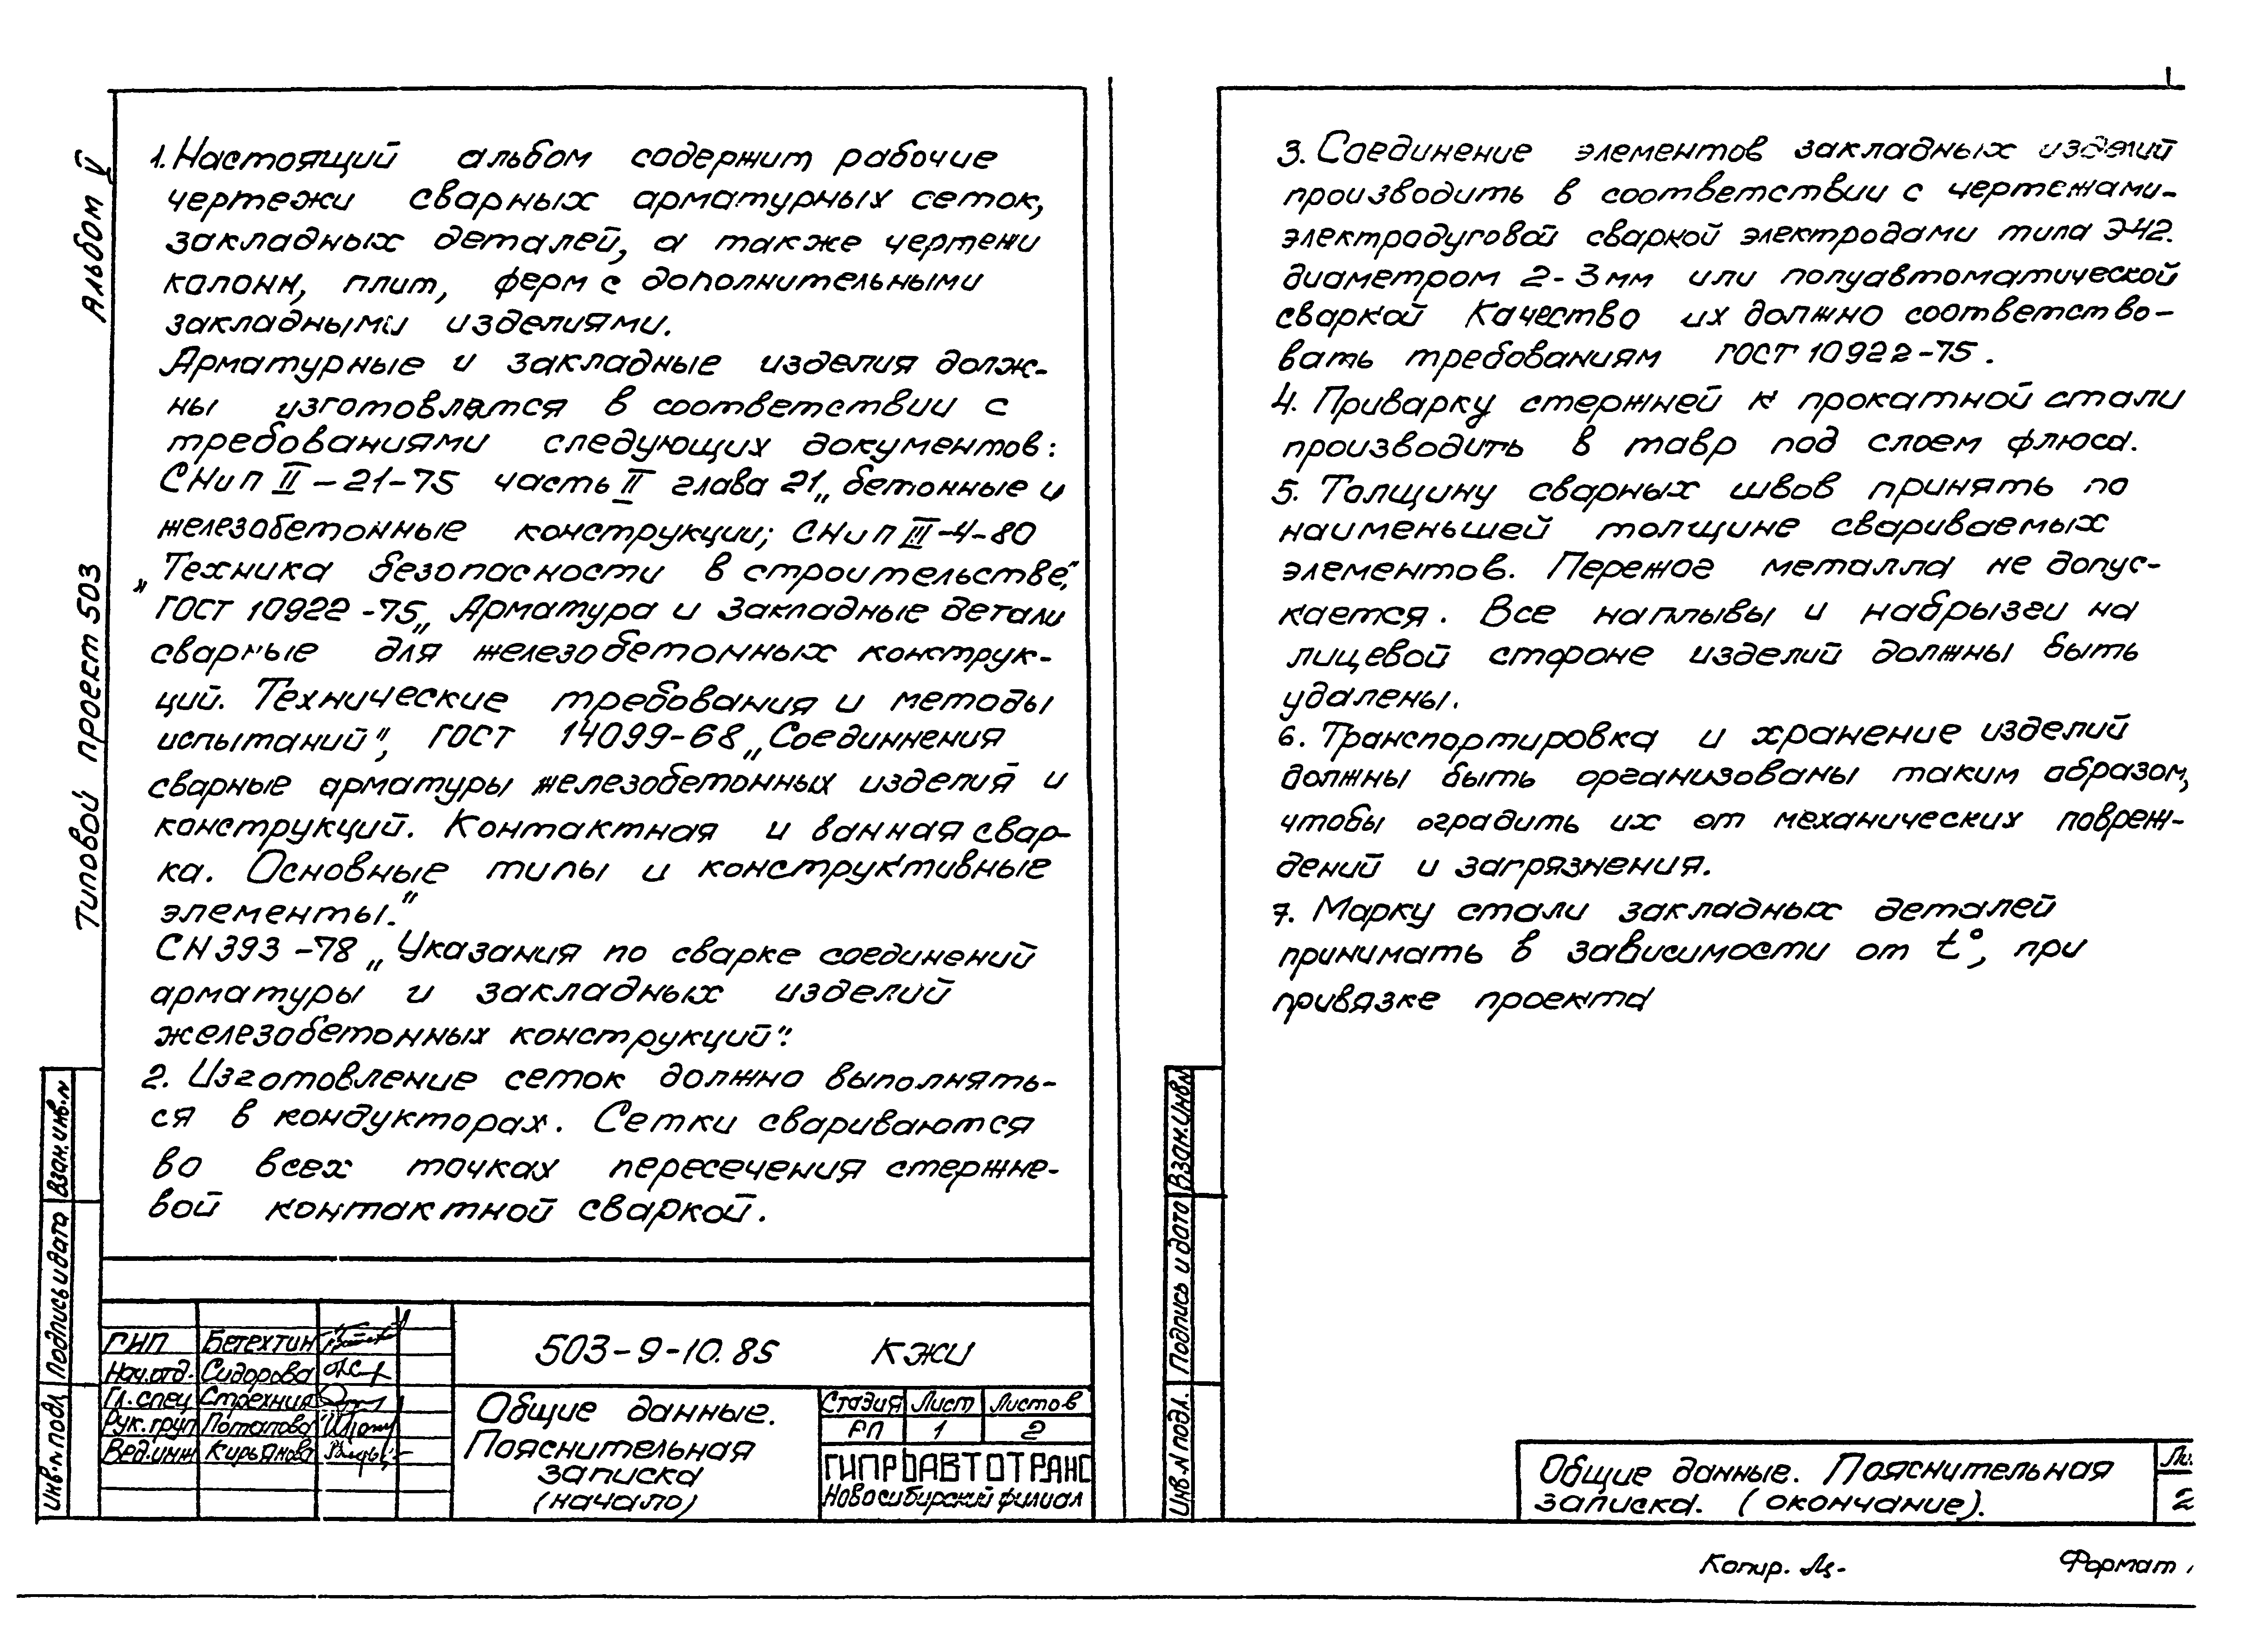 Альбом V
Типовой проект 503
1. Настоящий альбом содержит рабочие
чертежи сварных арматурных сеток,
закладных деталей, а также чертежи
колонн, плит, ферм с дополнительными
закладными изделиями.
Арматурные и закладные изделия долж-
ны изготовлятся в соответствии с
требованиями следующих документов:
СНиП II-21-75 часть II глава 21 „бетонные и
железобетонные конструкции; СНиП III-4-80
„Техника безопасности в строительстве,"
ГОСТ 10922-75 „Арматура и закладные детали
сварные для железобетонных конструк-
ций. Технические требования и методы
испытаний", ГОСТ 14099-68 „Соединнения
сварные арматуры железобетонных изделий и
конструкций. Контактная и ванная свар-
ка. Основные типы и конструктивные
элементы."
СН 393-78 „Указания по сварке соединений
арматуры и закладных изделий
железобетонных конструкций".
2. Изготовление сеток должно выполнять-
ся в кондукторах. Сетки свариваются
во всех точках пересечения стержне-
вой контактной сваркой.
Взан. инв. N
Подпись и дата
Инв. N подл
ГИП Бетехтин
Нач. отд. Сидорова
Гл. спец Стрехния
Рук. груп Потапова
Вед. инж Кирьянова
503-9-10.85 КЖИ
Общие данные.
Пояснительная
записка
(начало)
Стадия Лист Листов
РП 1 2
ГИПРОАВТОТРАНС
Новосибирский филиал
3. Соединение элементов закладных изделий
производить в соответствии с чертежами-
электродуговой сваркой электродами типа Э-42.
диаметром 2-3 мм или полуавтоматической
сваркой Качество их должно соответство-
вать требованиям ГОСТ 10922-75.
4. Приварку стержней к прокатной стали
производить в тавр под слоем флюса.
5. Толщину сварных швов принять по
наименьшей толщине свариваемых
элементов. Пережог металла не допус-
кается. Все наплывы и набрызги на
лицевой стороне изделий должны быть
удалены.
6. Транспортировка и хранение изделий
должны быть организованы таким образом,
чтобы оградить их от механических повреж-
дений и загрязнения.
7. Марку стали закладных деталей
принимать в зависимости от t°, при
привязке проекта
Взан. Инв N
Подпись и дата
Инв. N подл.
Общие данные. Пояснительная
записка. (окончание).
Ли.
2
Копир. Формат